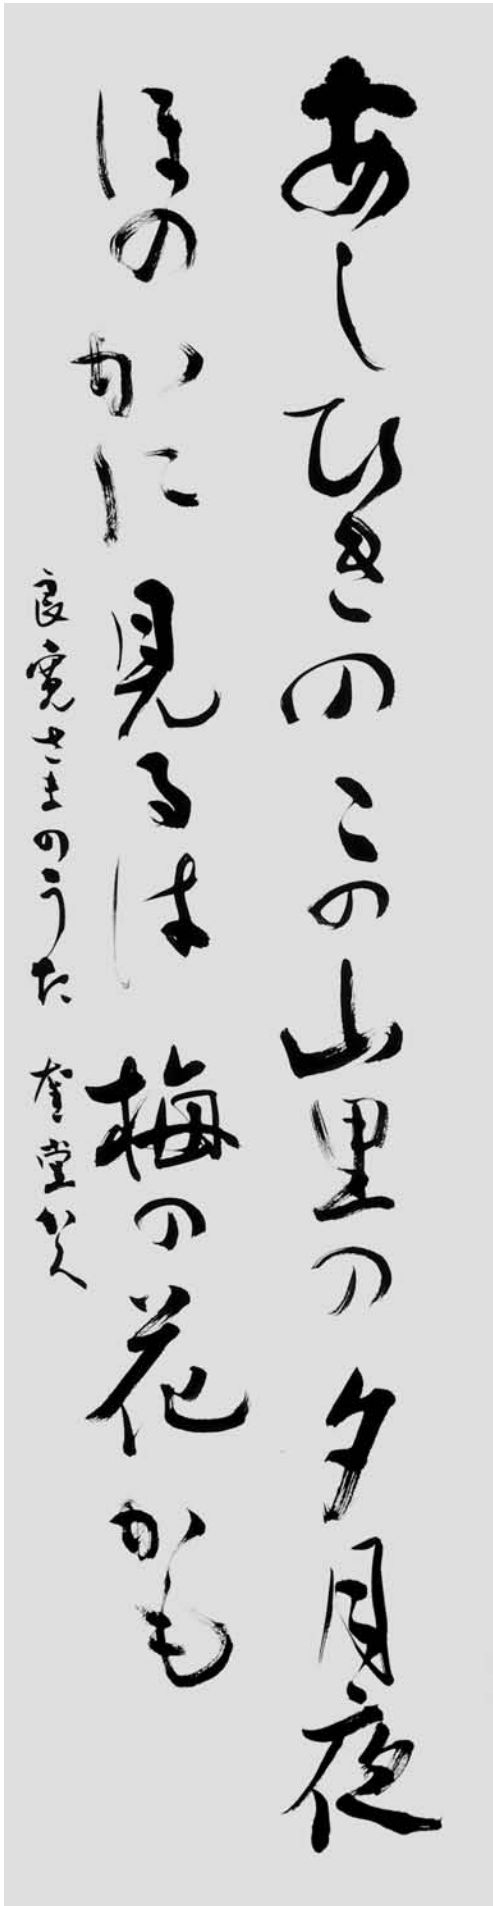 あしひきのこの山里の夕月夜
ほのかに見るは梅の花かも
良寛さまのうた 奎堂かく